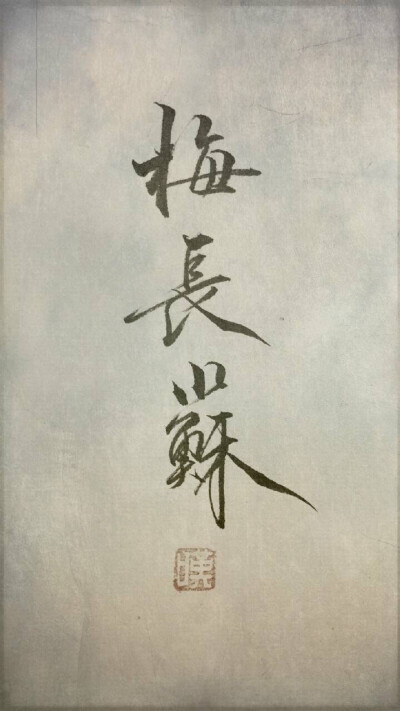 梅長蘇